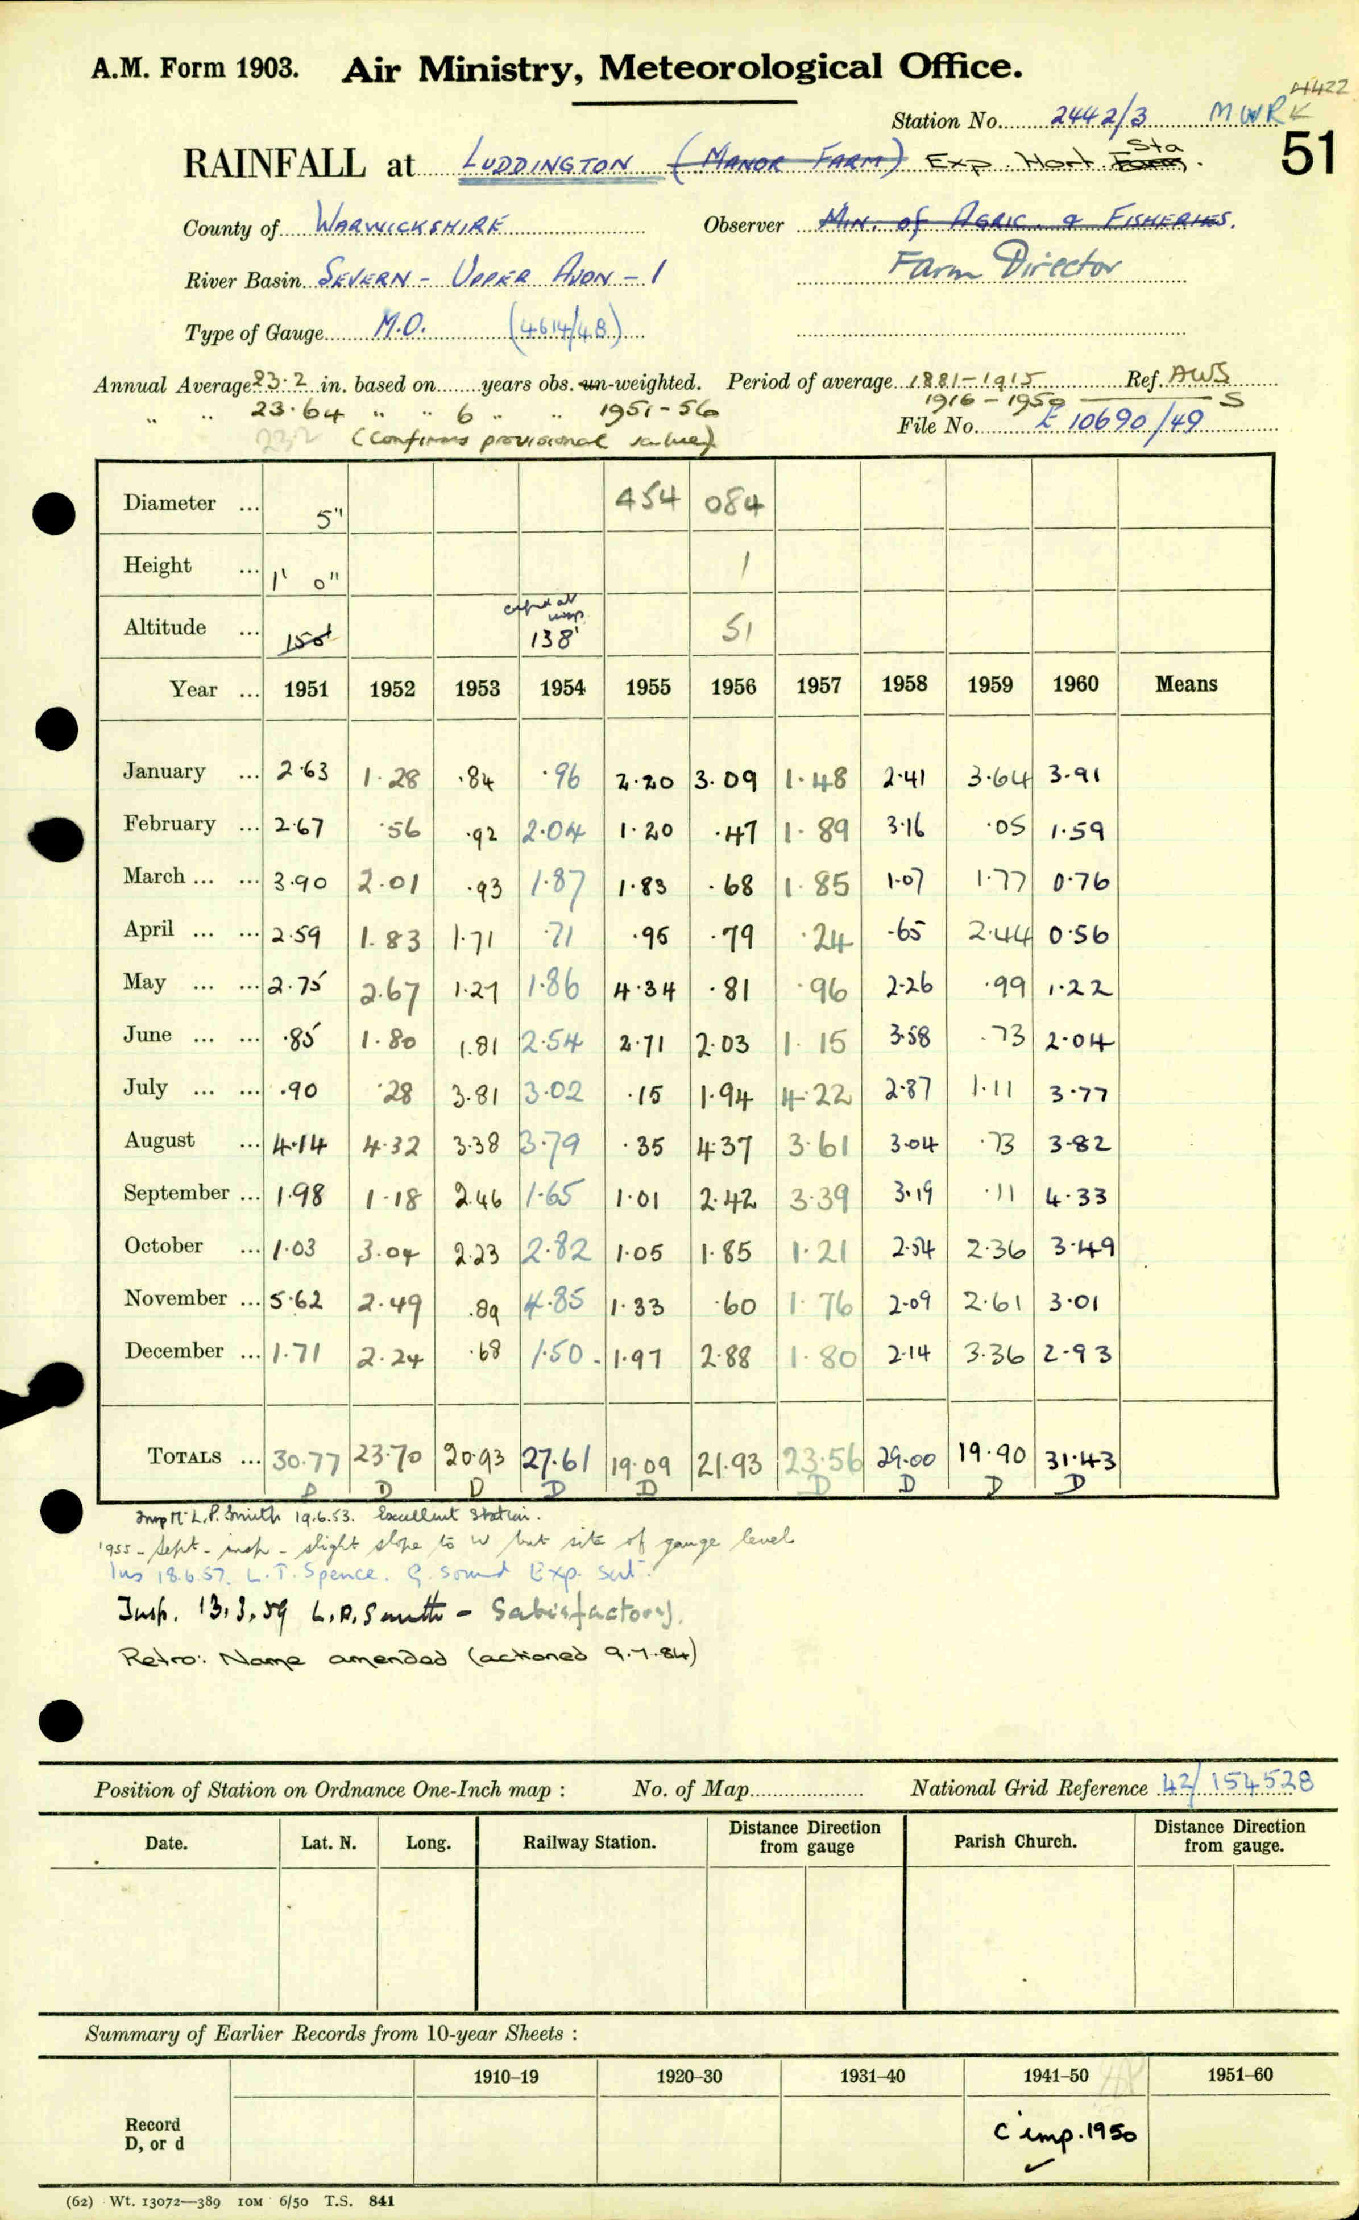 A.M. Form 1903. Air Ministry, Meteorological Office.
4422
Station No. 2442/3 MWRK
51
RAINFALL at LUDDINGTON (MANOR FARM) Exp. Hort. Farm Sta.
County of WARWICKSHIRE Observer MIN. of AGRIC. & FISHERIES.
River Basin SEVERN - UPPER AVON - 1 Farm Director
Type of Gauge M.O. (4614/48)
Annual Average 23.2 in. based on years obs. un-weighted. Period of average 1881-1915 Ref. AWS
" " 23.64 " " 6 " " 1951-56 1916-1950 S
232 (Confirms provisional value) File No. E 10690/49
Diameter ... 5" 454 084
Height ... 1' 0" 1
Altitude ... 150' 138' 51
Year ... 1951 1952 1953 1954 1955 1956 1957 1958 1959 1960 Means
January ... 2.63 1.28 .84 .96 2.20 3.09 1.48 2.41 3.64 3.91
February ... 2.67 .56 .92 2.04 1.20 .47 1.89 3.16 .05 1.59
March ... ... 3.90 2.01 .93 1.87 1.83 .68 1.85 1.07 1.77 0.76
April ... ... 2.59 1.83 1.71 .71 .95 .79 .24 .65 2.44 0.56
May ... ... 2.75 2.67 1.27 1.86 4.34 .81 .96 2.26 .99 1.22
June ... ... .85 1.80 1.81 2.54 2.71 2.03 1.15 3.58 .73 2.04
July ... ... .90 .28 3.81 3.02 .15 1.94 4.22 2.87 1.11 3.77
August ... 4.14 4.32 3.38 3.79 .35 4.37 3.61 3.04 .73 3.82
September ... 1.98 1.18 2.46 1.65 1.01 2.42 3.39 3.19 .11 4.33
October ... 1.03 3.04 2.23 2.82 1.05 1.85 1.21 2.54 2.36 3.49
November ... 5.62 2.49 .89 4.85 1.33 .60 1.76 2.09 2.61 3.01
December ... 1.71 2.24 .68 1.50 1.97 2.88 1.80 2.14 3.36 2.93
TOTALS ... 30.77 23.70 20.93 27.61 19.09 21.93 23.56 29.00 19.90 31.43
D D D D D D D D D
Insp Mr L.P. Smith 19.6.53. Excellent station.
1955 - Sept - insp - slight slope to W but site of gauge level
Ins 18.6.57. L.T. Spence. G. sound Exp. sat.
Insp. 13.3.59 L.P. Smith - Satisfactory.
Retro: Name amended (actioned 9.7.84)
Position of Station on Ordnance One-Inch map : No. of Map National Grid Reference 42/154528
Date. Lat. N. Long. Railway Station. Distance Direction from gauge Parish Church. Distance Direction from gauge.
Summary of Earlier Records from 10-year Sheets :
1910–19 1920–30 1931–40 1941–50 1951–60
Record
D, or d
C imp. 1950
(62) Wt. 13072—389 10M 6/50 T.S. 841